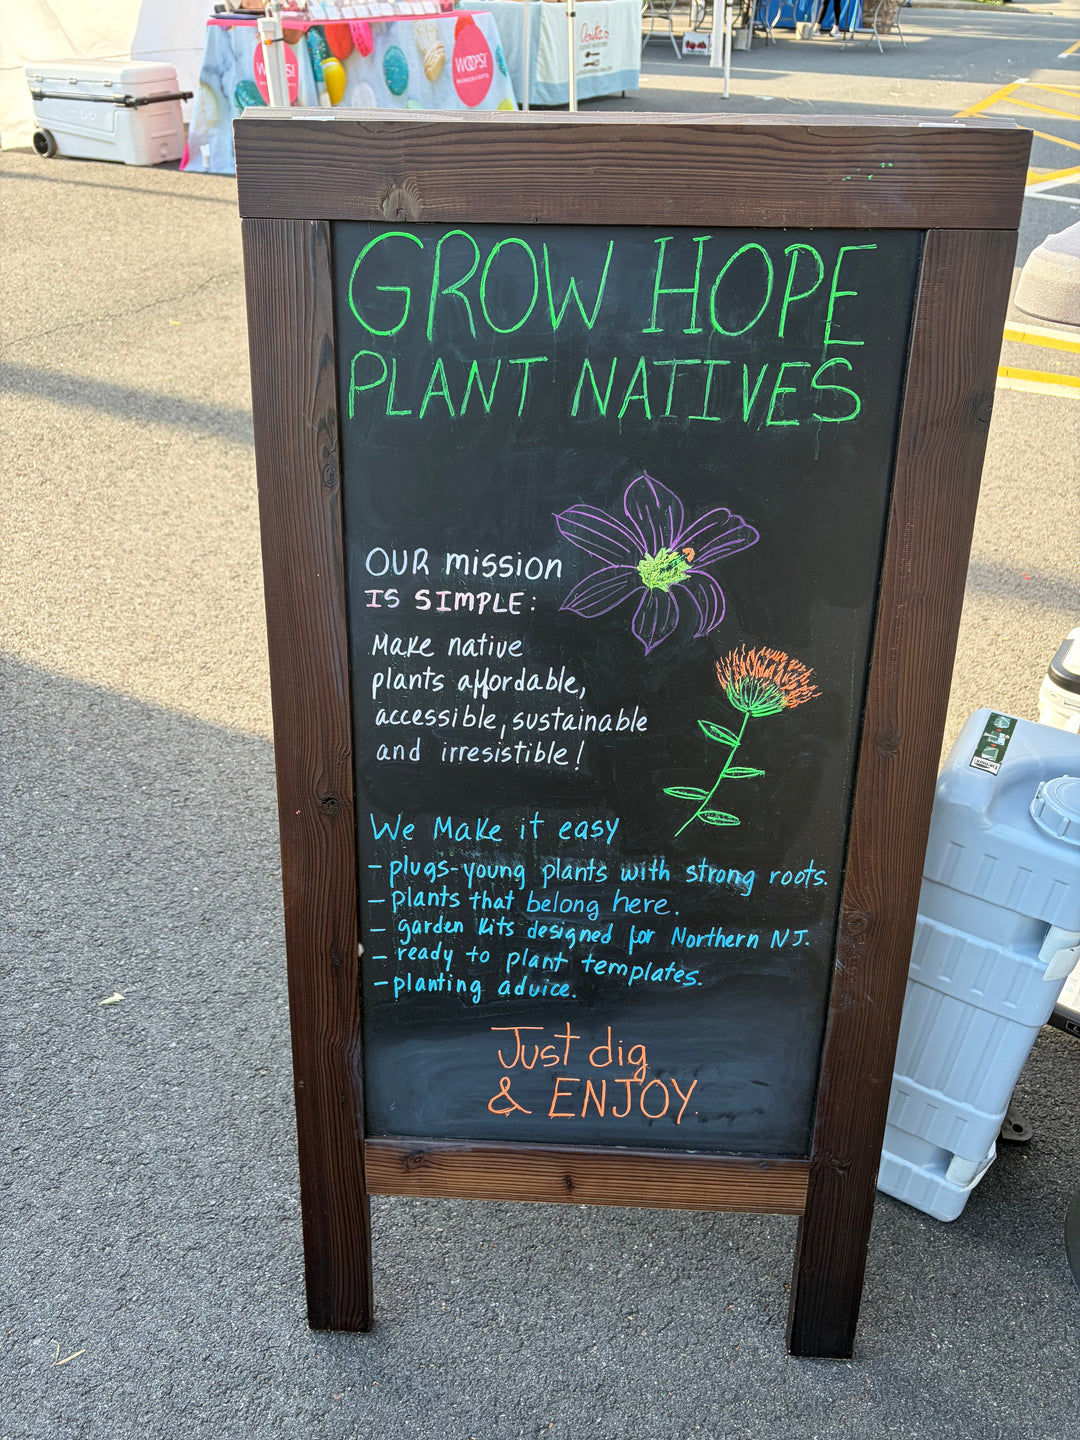 WOOPS!
GROW HOPE
PLANT NATIVES
OUR mission
IS SIMPLE:
Make native
plants affordable,
accessible, sustainable
and irresistible!
We Make it easy
- plugs-young plants with strong roots.
- plants that belong here.
- garden kits designed for Northern NJ.
- ready to plant templates.
- planting advice.
Just dig
& ENJOY